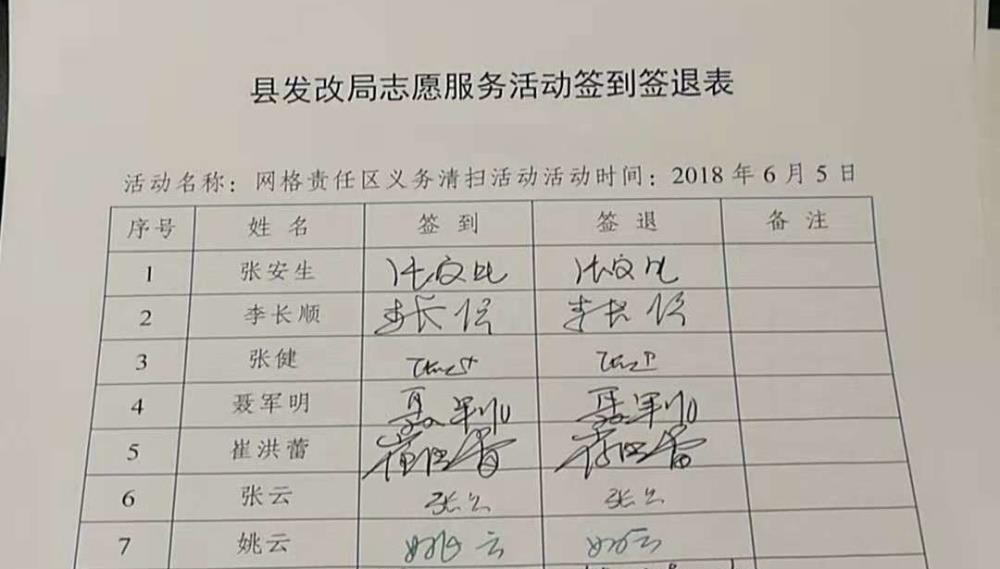 县发改局志愿服务活动签到签退表
活动名称：网格责任区义务清扫活动活动时间：2018年6月5日
序号 姓名 签到 签退 备注
1 张安生
2 李长顺 李长顺 李长顺
3 张健
4 聂军明 聂军明 聂军明
5 崔洪蕾 崔洪蕾 崔洪蕾
6 张云 张云 张云
7 姚云 姚云 姚云